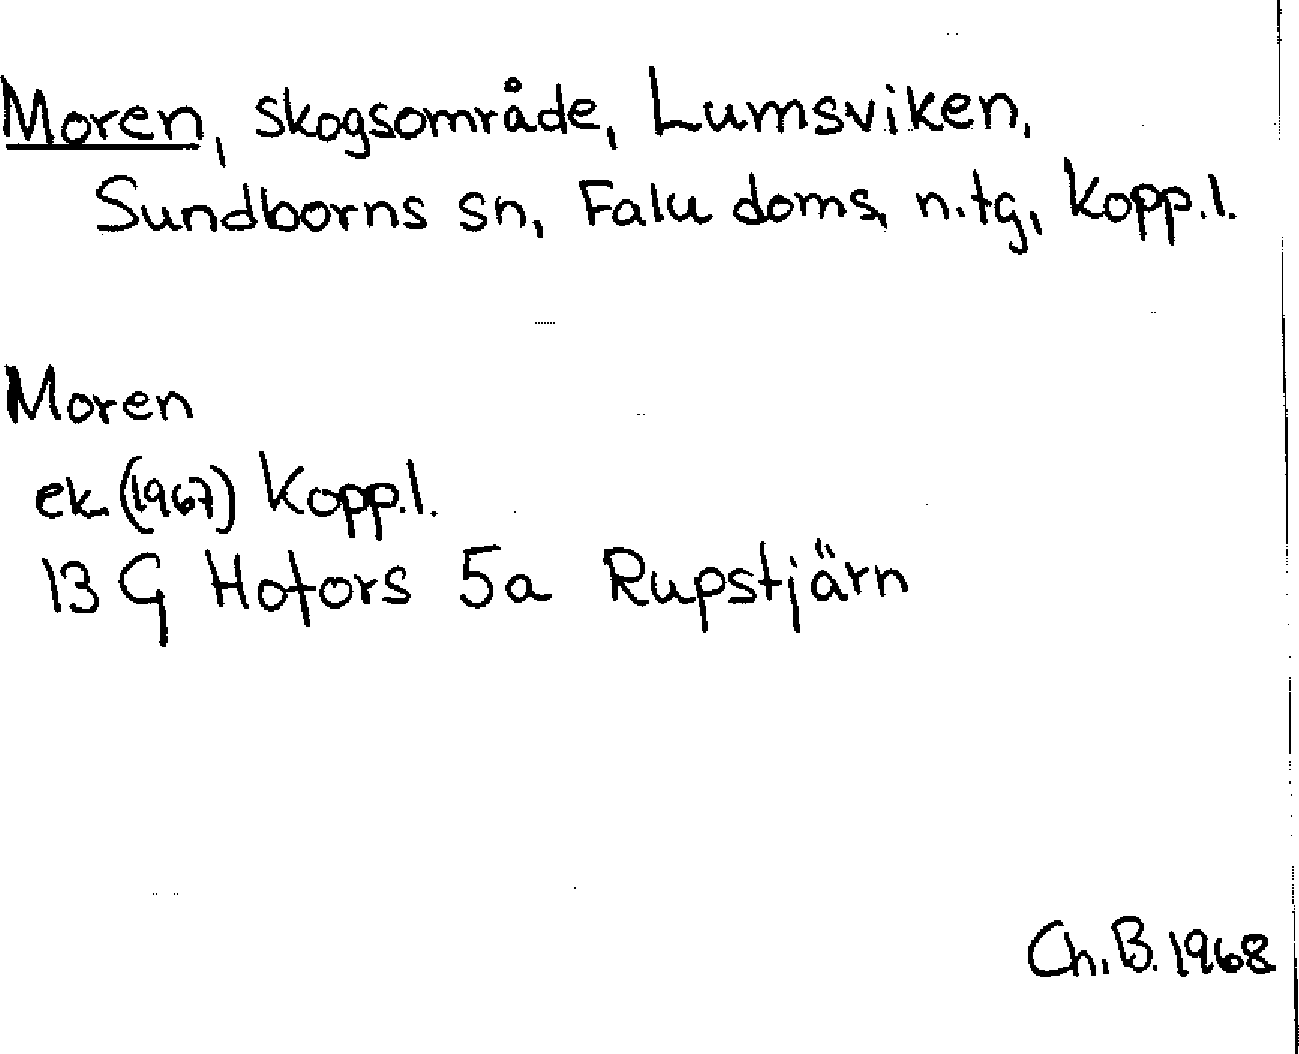 Moren, skogsområde, Lumsviken,
Sundborns sn, Falu doms, n.tg, Kopp.l.
Moren
ek. (1967) Kopp.l.
13 G Hofors 5a Rupstjärn
Ch.B. 1968